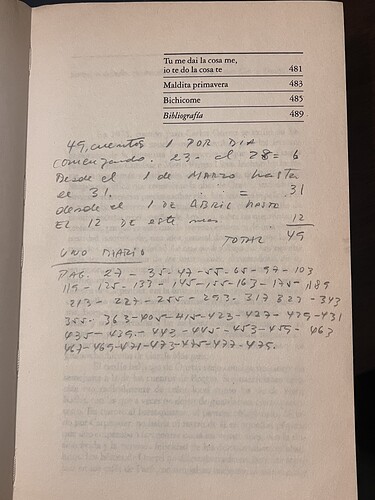 Tu me dai la cosa me,
io te do la cosa te 481
Maldita primavera 483
Bichicome 485
Bibliografía 489
49, cuentos 1 POR DIA
comenzando. 23- al 28= 6
Desde el 1 de MARZO hasta
el 31. = 31
desde el 1 de ABRIL hasta
EL 12 DE este mes 12
TOTAL 49
UNO DIARIO
PAG. 27 - 35-47-55-65-97-103
119-125-133-145-155-163-175-189
213-227-255-293. 317 323-343
355. 363-405-415-423-427-429-431
435-439.-443-445-453-459-463
467-469-471-473-475-477-479.